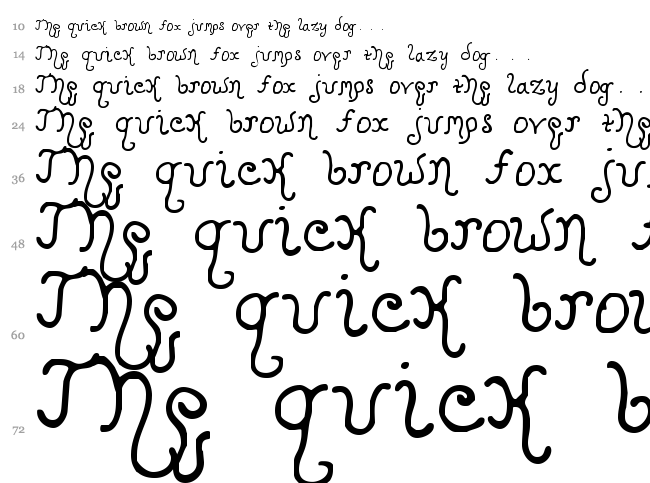 10 The quick brown fox jumps over the lazy dog. . . .
14 The quick brown fox jumps over the lazy dog. . . .
18 The quick brown fox jumps over the lazy dog. . .
24 The quick brown fox jumps over the
36 The quick brown fox ju
48 The quick brown
60 The quick brou
72 The quick